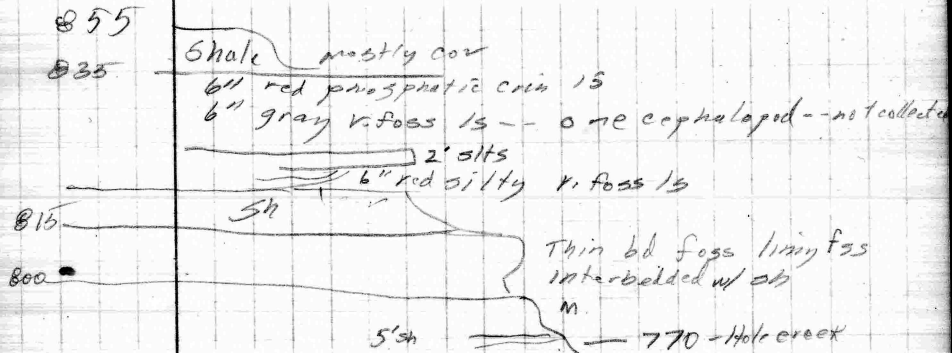 855
Shale mostly cov
835
6" red phosphatic crin ls
6" gray v. foss ls -- one cephalopod -- not collected
2' slts
6" red silty v. foss ls
Sh
815
Thin bd foss limy fss
800
interbedded w/ sh
M
5' sh
770 - Hole creek